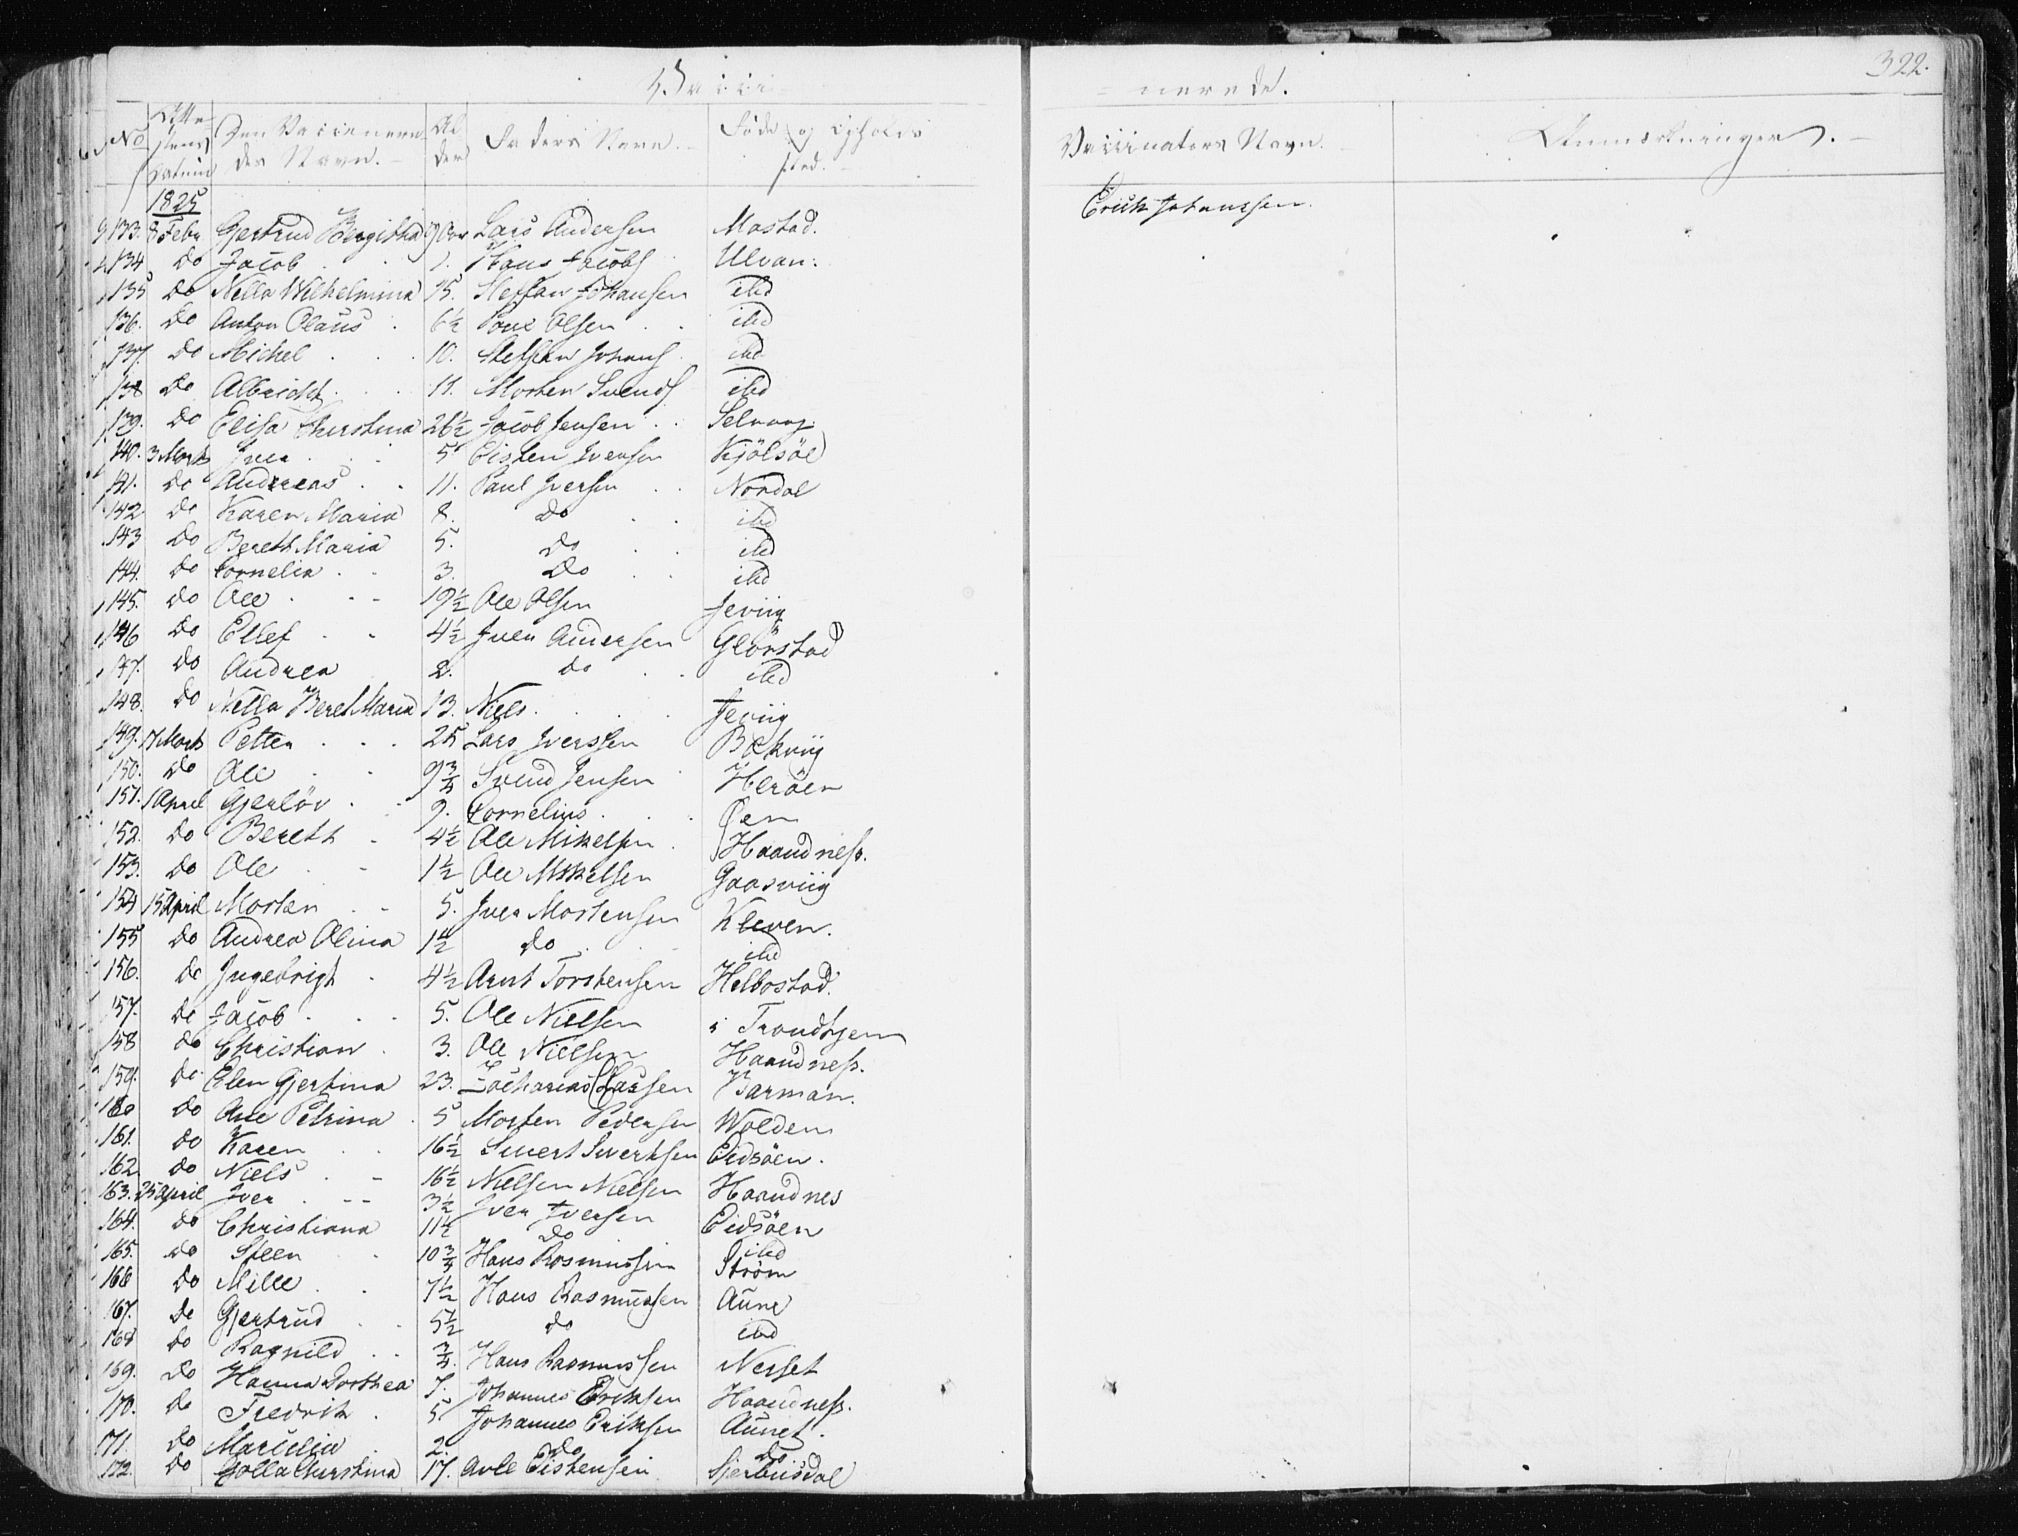 Vacci- nerede. 322.
No Attestens Datum Den Vaccinerendes Navn. Alder Faders Navn. Føde og Opholds sted. Vaccinators Navn. Anmærkninger.
1825
133. 8 Febr Gertrud Bergitha 9 Aar Lars Andersen Mastad. Erich Johanssen.
134 do Jacob 7. Hans Jacobs Ulvan.
135 do Nella Wilhelmina 15. Steffan Johansen ibd
136. do Anton Olaus 6½ Poul Olsen ibd
137. do Michel 10. Steffan Johans ibd
138 do Albricht 11. Morten Svends ibd
139. do Elisa Cherstina 26½ Jacob Jensen Selvaag
140. 3 Marts Iver 5 Eisten Iversen Kjölsöe
141. do Andreas 11. Paul Iversen Nordal
142 do Karen Maria 8. do ibd
143 do Bereth Maria 5. do ibd
144. do Cornelia 3. do ibd
145. do Ole 19½ Ole Olsen Jeviig
146 do Ellef 4½ Iver Andersen Glörstad
147. do Andrea 2. do ibd
148. do Nella Beret Maria 13. Niels Jeviig
149. 17 Marts Petter 25 Lars Iverssen Bekviig
150. do Ole 9¾ Svend Jensen Heröen
151. 1 April Gjerlöv 9. Cornelius Öen
152. do Bereth 4½ Ole Mikelsen Haandness.
153. do Ole 1½ Ole Mikelsen Gaasviig
154 15 April Morten 5. Iver Mortensen Kleven.
155 do Andrea Olina 1½ do ibd
156. do Ingebrigt 4½ Arnt Torstensen Helbostad.
157. do Jacob 5. Ole Nielsen i Trondhjem
158 do Christian 3. Ole Nielsen Haandness.
159. do Elen Gjertina 23. Zacharias Larsen Varman.
160 do Ane Petrina 5 Morten Pedersen Wolden
161. do Karen 16½ Sivert Sivertsen Eidsöen.
162 do Niels 16½ Nielsen Nielsen Haandnes
163. 25 April Iver 3½ Iver Iversen Eidsöen
164. do Christiana 11½ do ibd
165. do Steen 10¾ Hans Rasmussen Ström
166 do Mille 7½ Hans Rasmussen Aune
167. do Gjertrud 5½ do ibd
168 do Ragnild ¾. Hans Rasmussen Nesset
169. do Hanna Dorthea 7. Johannes Eriksen Haandness.
170. do Fredrik 5 Johannes Eriksen Aunet.
171. do Marselia 2. do do
172. do Golla Cherstina 17. Avle Eistensen Sjerbusdal